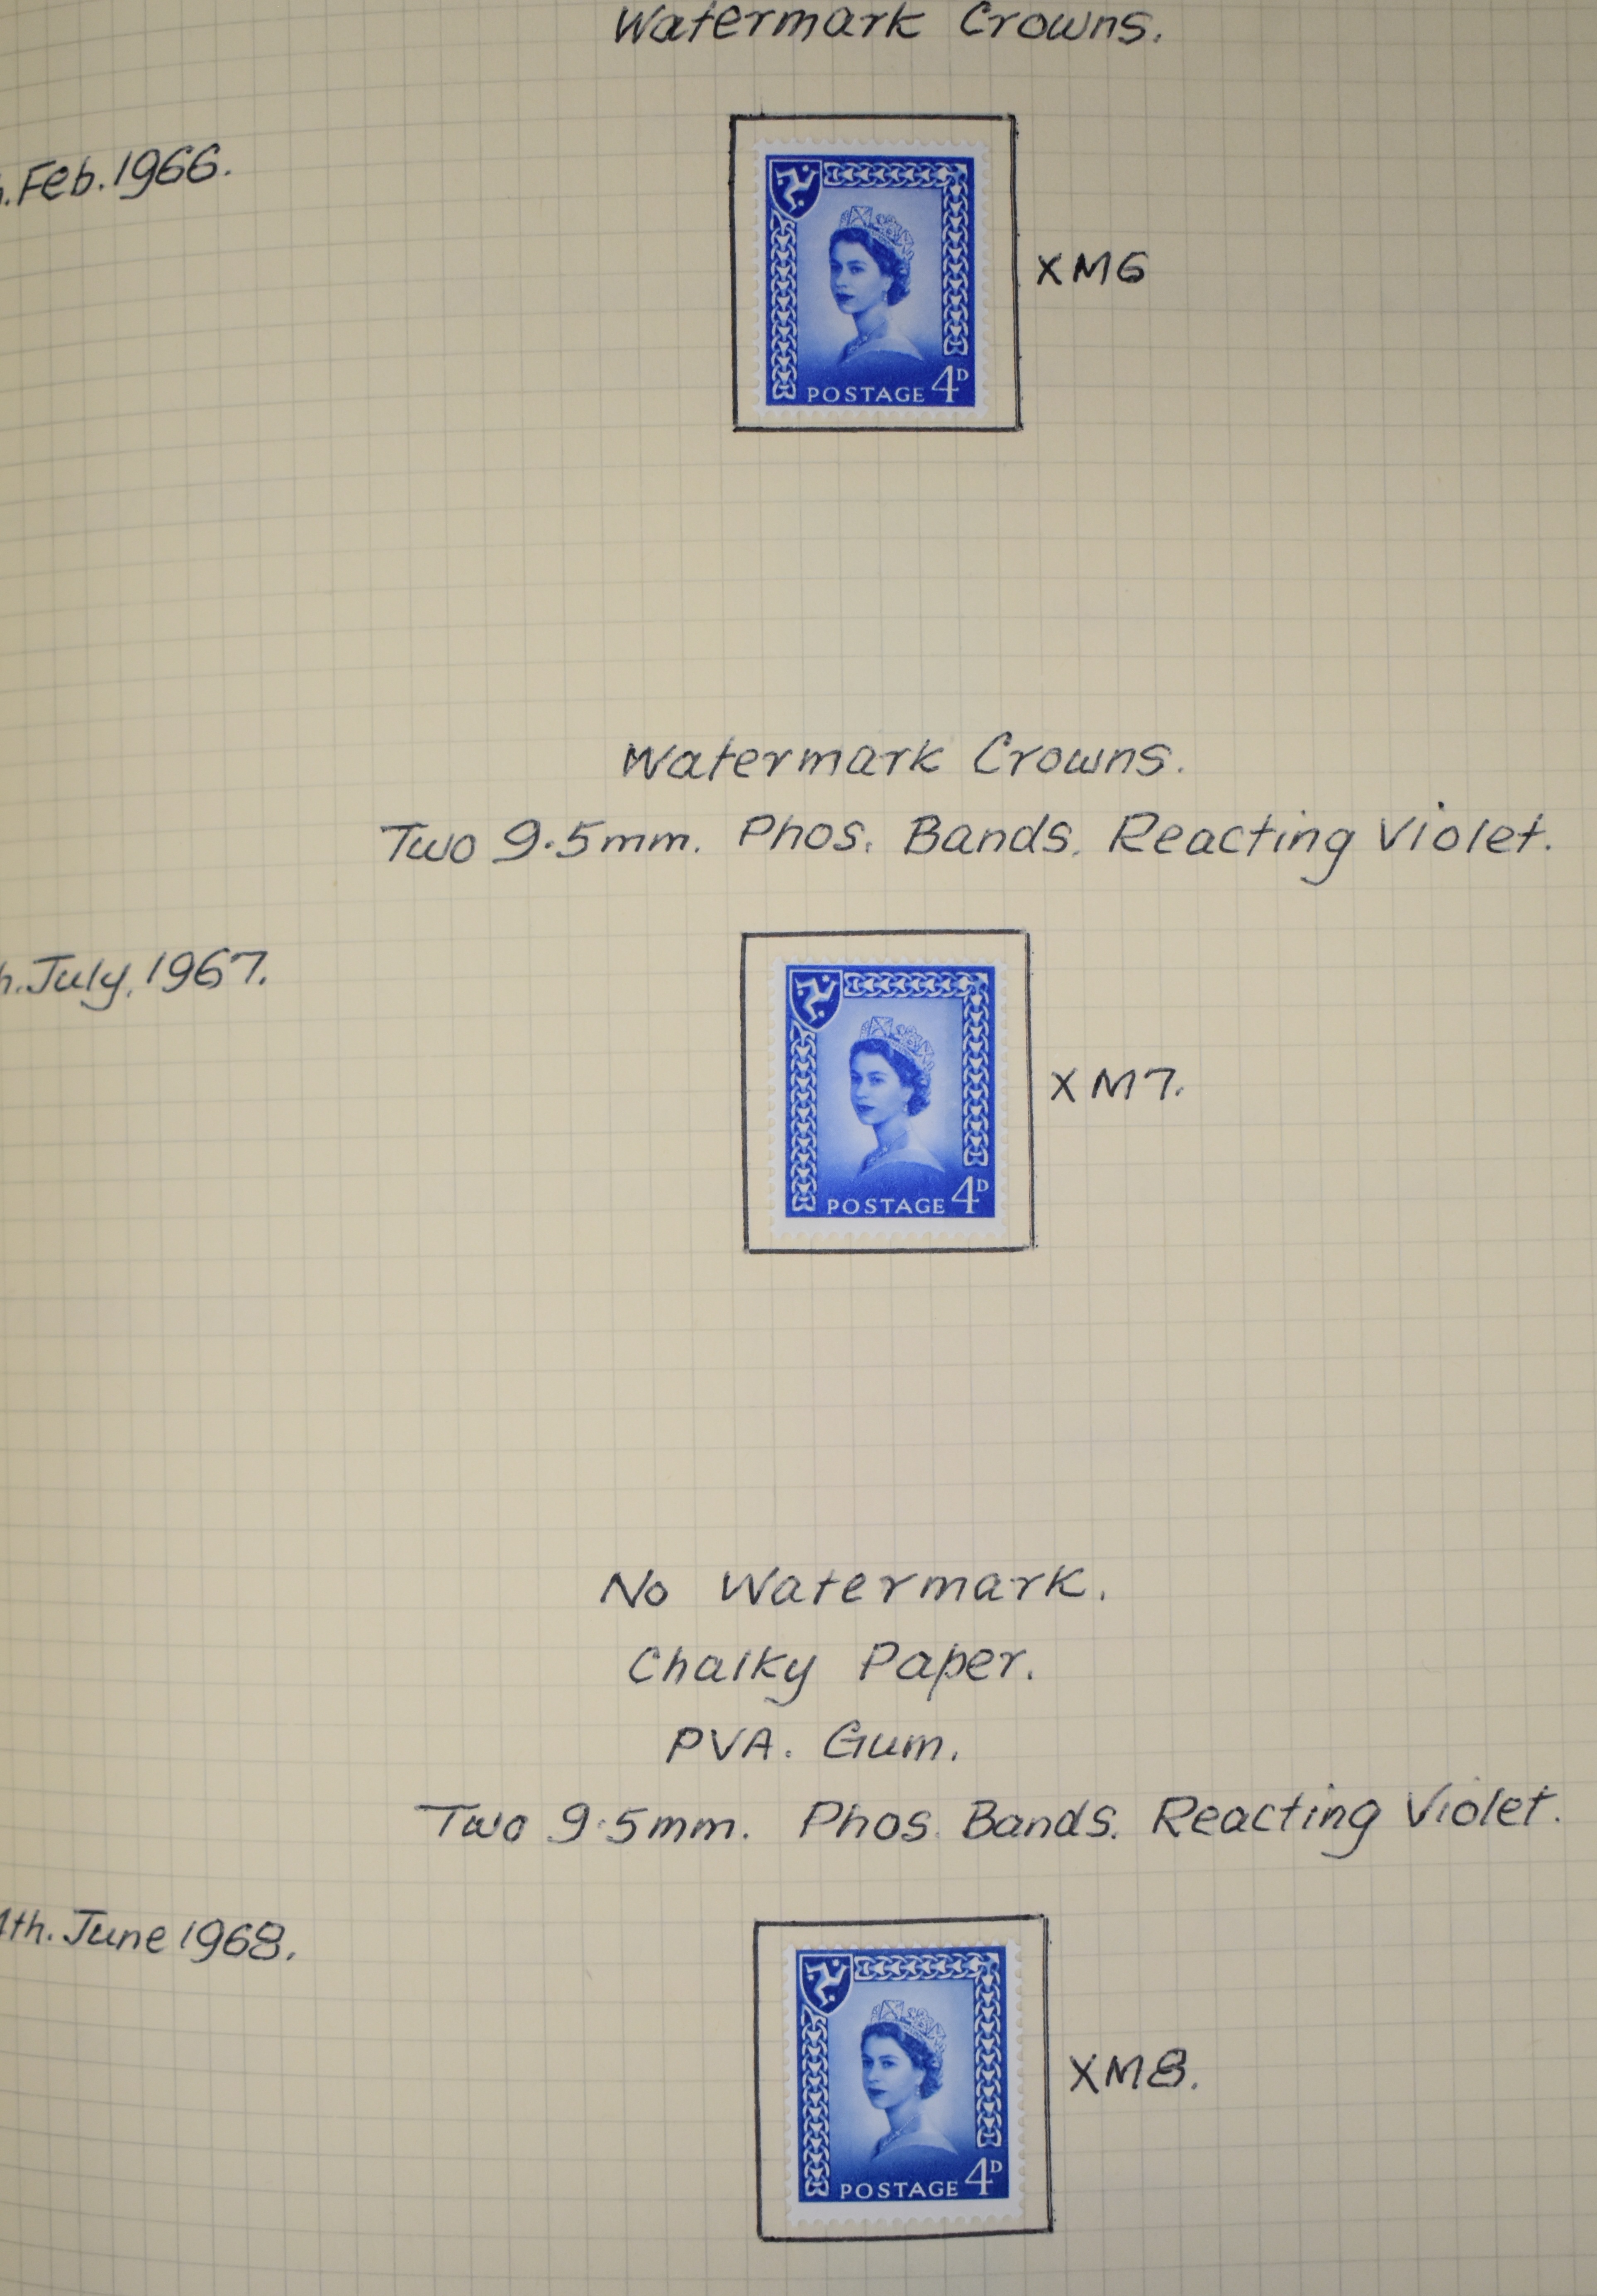 Watermark Crowns.
Feb. 1966.
XM6
POSTAGE 4D
Watermark Crowns.
Two 9.5mm. Phos. Bands. Reacting Violet.
h. July, 1967.
XM7.
POSTAGE 4D
No Watermark.
Chalky Paper.
PVA. Gum.
Two 9.5mm. Phos. Bands. Reacting Violet.
4th. June 1968.
XM8.
POSTAGE 4D